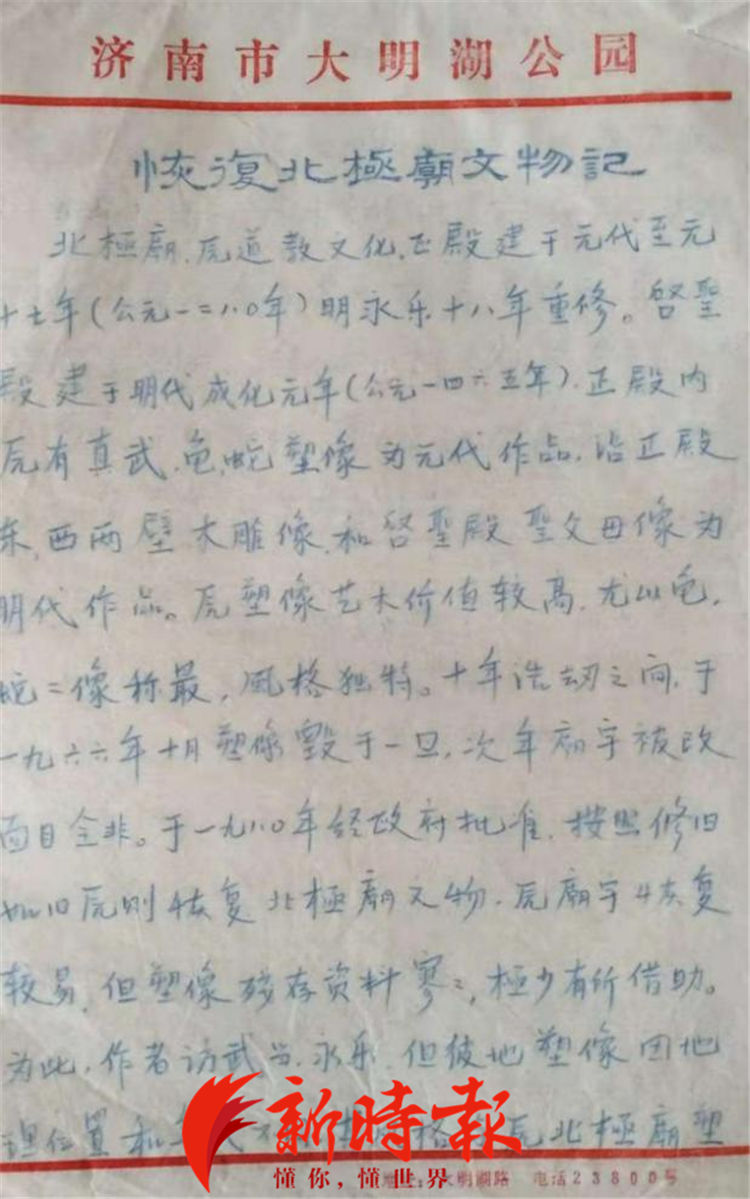 济南市大明湖公园
恢復北極廟文物記
北極廟.原道教文化.正殿建于元代至元
十七年(公元一二八0年)明永乐十八年重修。啓聖
殿建于明代成化元年(公元一四六五年).正殿内
原有真武.龟.蛇塑像为元代作品.沿正殿
东.西两壁木雕像.和啓聖殿聖父母像为
明代作品。原塑像艺术价值较高.尤以龟.
蛇二像称最.风格独特。十年浩劫之间.于
一九六六年十月塑像毁于一旦.次年廟宇被改
面目全非。于一九八0年经政府批准.按照修旧
如旧原则恢复北極廟文物.原廟宇恢复
较易.但塑像残存资料寥二,極少有所借助。
为此.作者访武当.永乐.但彼地塑像因地
理位置和 原北極廟塑
新時報
懂你,懂世界
明湖路 电话23800号